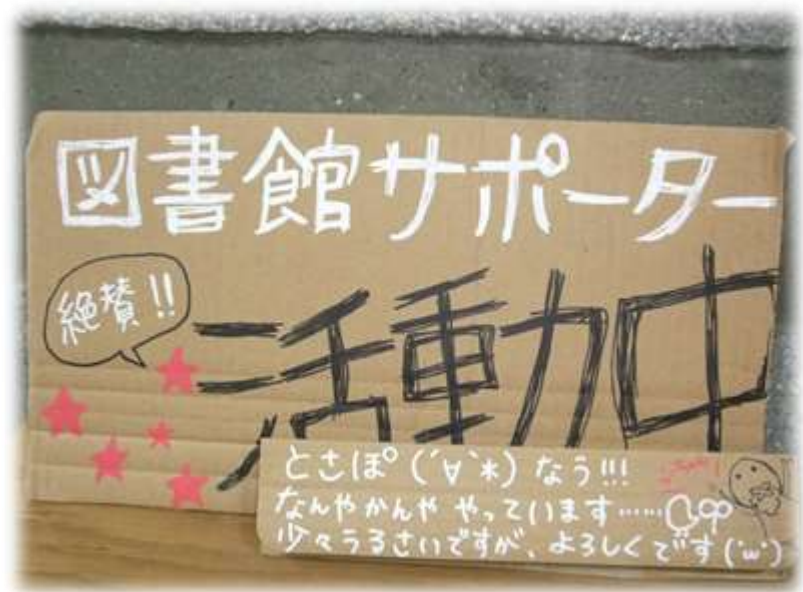 図書館サポーター
絶賛!!
活動中
とさぽ(´∀`*)なう!!!
なんやかんややっています……
少々うるさいですが、よろしくです(´ω`)